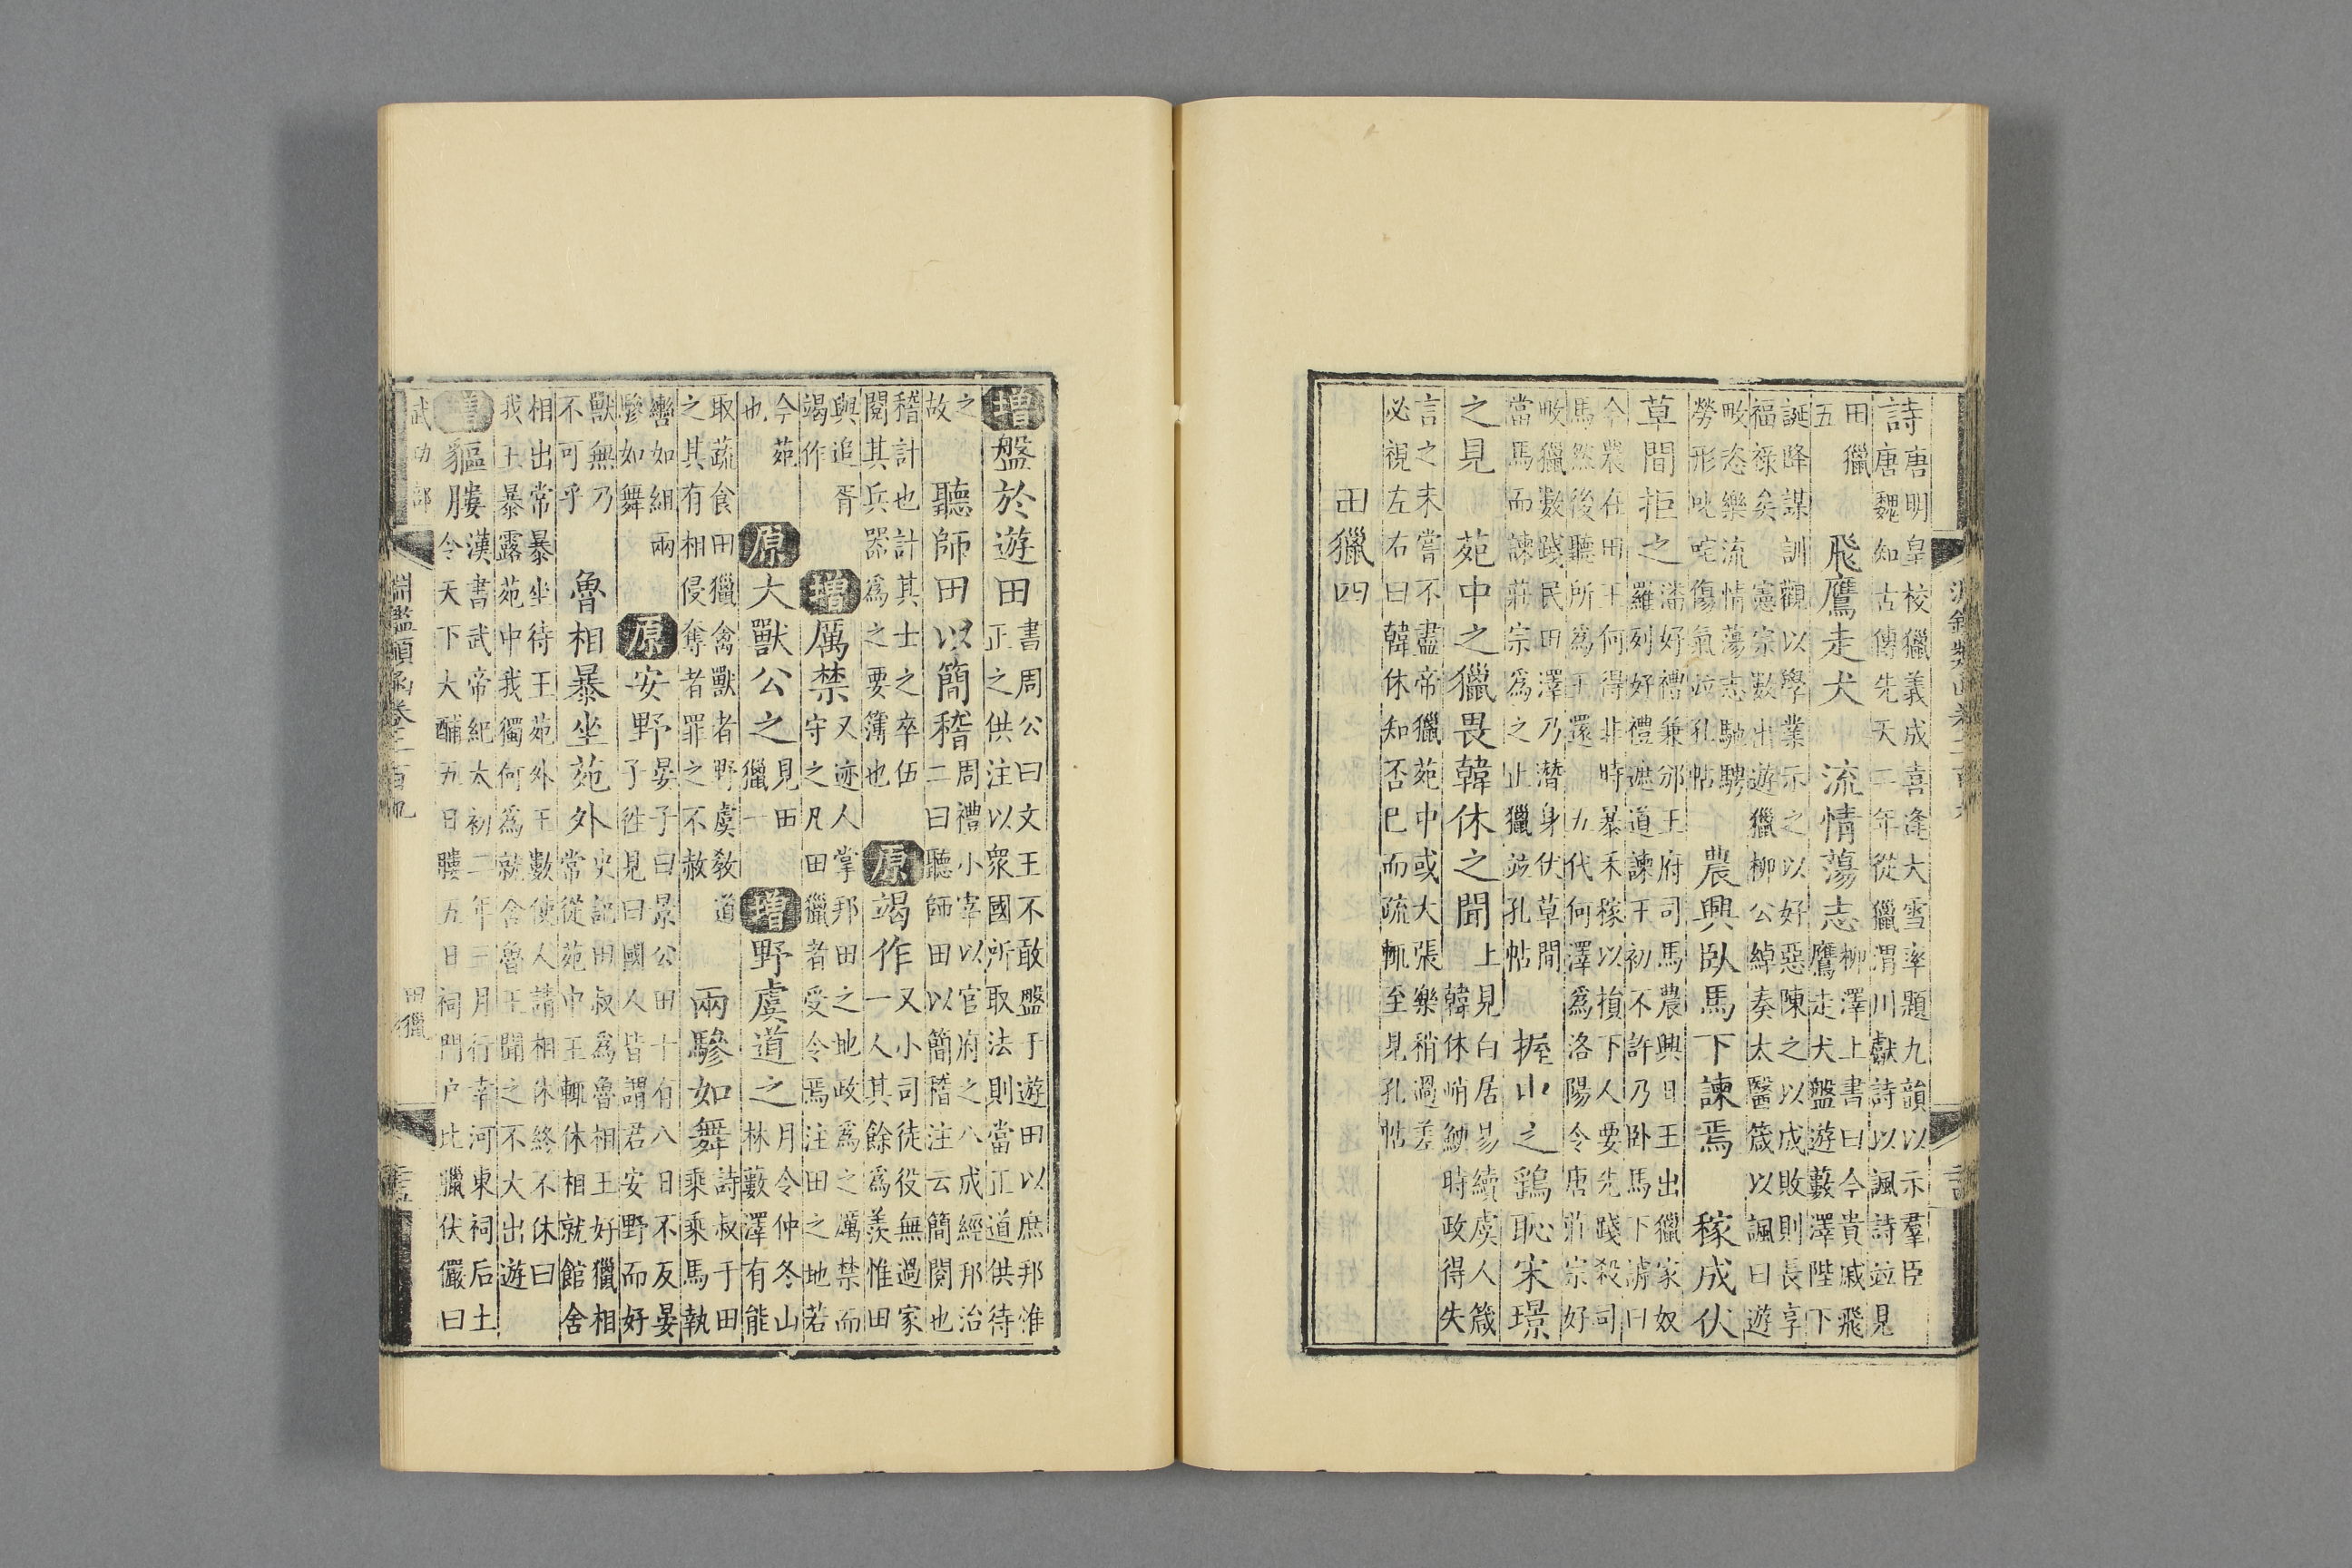 詩唐明皇校獵義成喜逢大雪率題九韻以示羣臣
唐魏知古傳先天二年從獵渭川獻詩以諷詩竝見
田獵
五
飛鷹走犬　流情蕩志柳澤上書曰今貴戚飛
鷹走犬盤遊藪澤陛下
誕降謀訓觀以學業示之以好惡陳之以成敗則長享
福祿矣　憲宗數出遊獵柳公綽奏太醫箴以諷曰遊
畋恣樂流情蕩志馳騁
勞形叱咤傷氣竝孔帖
農興臥馬下諫焉　稼成伏
草間拒之滿好禮兼邠王府司馬農興日王出獵家奴
羅列好禮遮道諫王初不許乃卧馬下謼曰
今農在田王何得非時暴禾稼以損下人要先踐殺司
馬然後聽所爲王還　五代何澤爲洛陽令唐莊宗好
畋獵數踐民田澤乃潛身伏草間
當馬而諫莊宗爲之止獵竝孔帖
握小之鷂恥宋璟
之見　苑中之獵畏韓休之聞上見白居易續虞人箴
韓休峭鯁時政得失
言之未嘗不盡帝獵苑中或大張樂稍過差
必視左右曰韓休知否已而疏輒至見孔帖
田獵四
增盤於遊田書周公曰文王不敢盤于遊田以庶邦惟
正之供注以衆國所取法則當正道供待
之
故
聽師田以簡稽周禮小宰以官府之八成經邦治
二曰聽師田以簡稽注云簡閱也
稽計也計其士之卒伍
閱其兵器爲之要簿也
原竭作又小司徒役無過家
一人其餘爲羨惟田
與追胥
竭作
增厲禁又迹人掌邦田之地政爲之厲禁而
守之凡田獵者受令焉注田之地若
今苑
也
原大獸公之見田
獵一
增野虞道之月令仲冬山
林藪澤有能
取蔬食田獵禽獸者野虞教道
之其有相侵奪者罪之不赦
兩驂如舞詩叔于田
乘乘馬執
轡如組兩
驂如舞
原安野晏子曰景公田十有八日不反晏
子徃見曰國人皆謂君安野而好
獸無乃
不可乎
魯相暴坐苑外史記田叔爲魯相王好獵相
常從苑中王輒休相就館舍
相出常暴坐待王苑外王數使人請相休終不休曰
我王暴露苑中我獨何爲就舍魯王聞之不大出遊
增貙膢漢書武帝紀太初二年三月行幸河東祠后土
令天下大酺五日膢五日祠門户比臘伏儼曰
武功部
淵鑑類函卷二百九
田獵